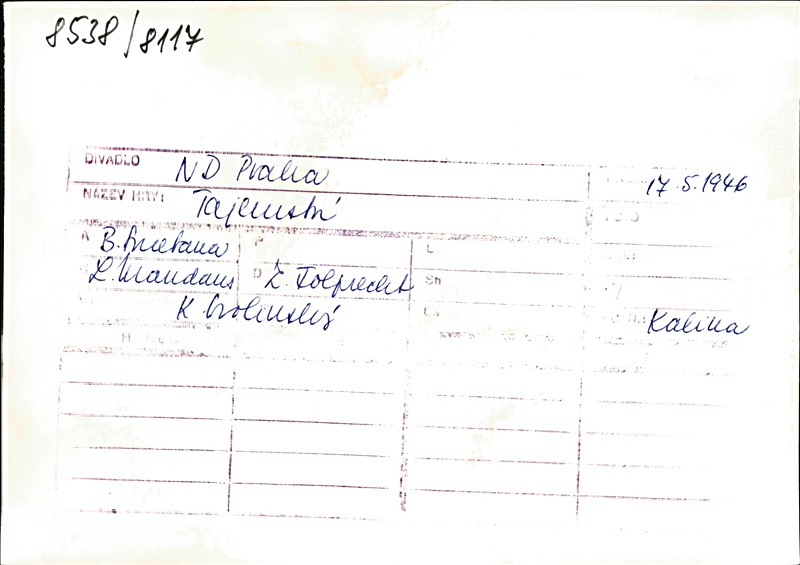 8538/8117
DIVADLO ND Praha 17.5.1946
NÁZEV HRY: Tajemství
A B. Smetana L
L. Mandaus D Z. Folprecht Sh
K. Svolinský Kalina